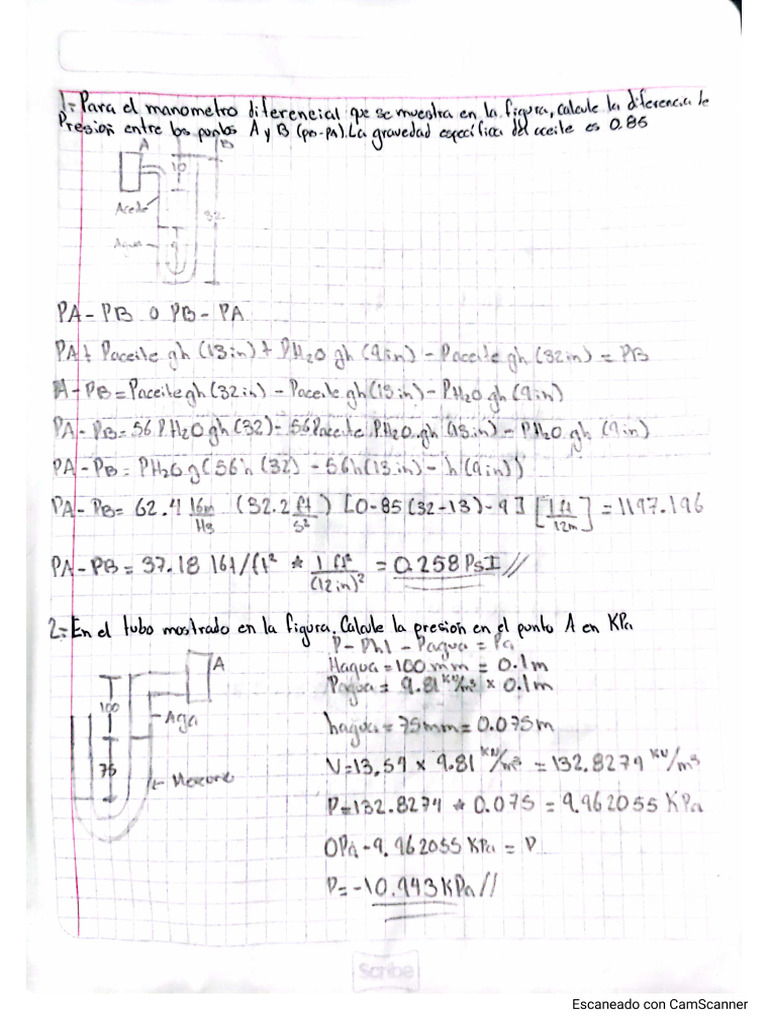 1.- Para el manometro diferencial que se muestra en la figura, calcule la diferencia de
Presion entre los puntos A y B (PB-PA). La gravedad especifica del aceite es 0.85
A
B
10
Aceite
32
Agua
9
PA - PB o PB - PA
PA + Paceite gh (13in) + PH₂O gh (9in) - Paceite gh (32in) = PB
A - PB = Paceite gh (32in) - Paceite gh (13in) - PH₂O gh (9in)
PA - PB = 56 PH₂O gh (32) - 56 Paceite PH₂O gh (13in) - PH₂O gh (9in)
PA - PB = PH₂O g (56h (32) - 56h (13in) - h (9in))
PA - PB = 62.4 lbm/ft3 (32.2 ft/s²) [0.85 (32-13) - 9] [1ft/12in] = 1197.196
PA - PB = 37.18 lbf/ft² * 1ft²/(12in)² = 0.258 PSI //
2.- En el tubo mostrado en la figura. Calcule la presion en el punto A en KPa
A
100
Aga
75
Mercurio
P - Ph1 - Pagua = Pa
Hagua = 100 mm = 0.1m
Pagua = 9.81 KN/m³ x 0.1m
hagua = 75mm = 0.075m
V = 13.54 x 9.81 KN/m³ = 132.8274 KN/m³
P = 132.8274 * 0.075 = 9.962055 KPa
0Pa - 9.962055 KPa = P
P = -10.943 KPa //
Scribe
Escaneado con CamScanner